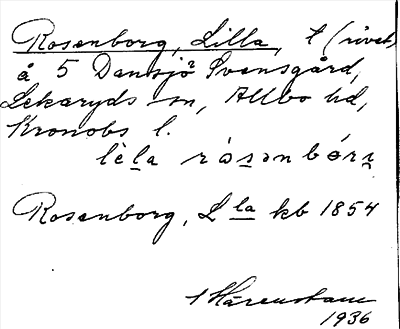 Rosenborg, Lilla, t (rivet)
å 5 Dansjö Svensgård,
Lekaryds sn, Allbo hd,
Kronobs l.
lèla rósənbórn
Rosenborg, L la kb 1854
1936